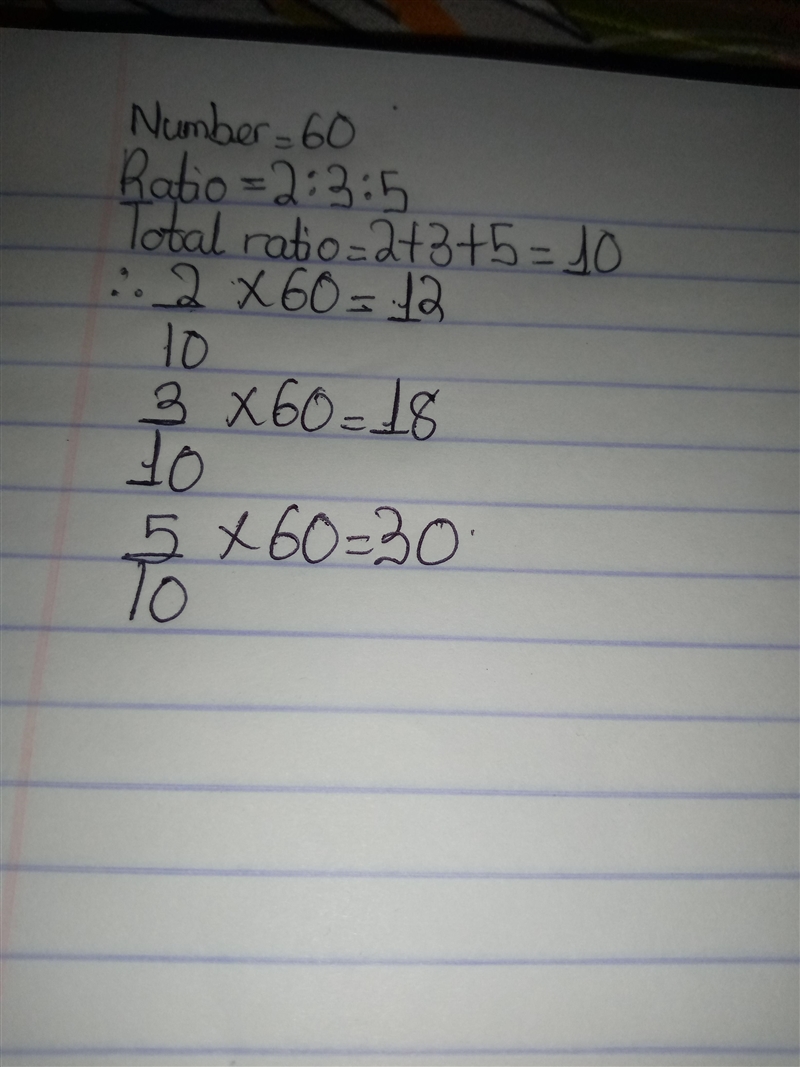 Number = 60
Ratio = 2:3:5
Total ratio = 2+3+5 = 10
∴ 2 × 60 = 12
10
3 × 60 = 18
10
5 × 60 = 30
10